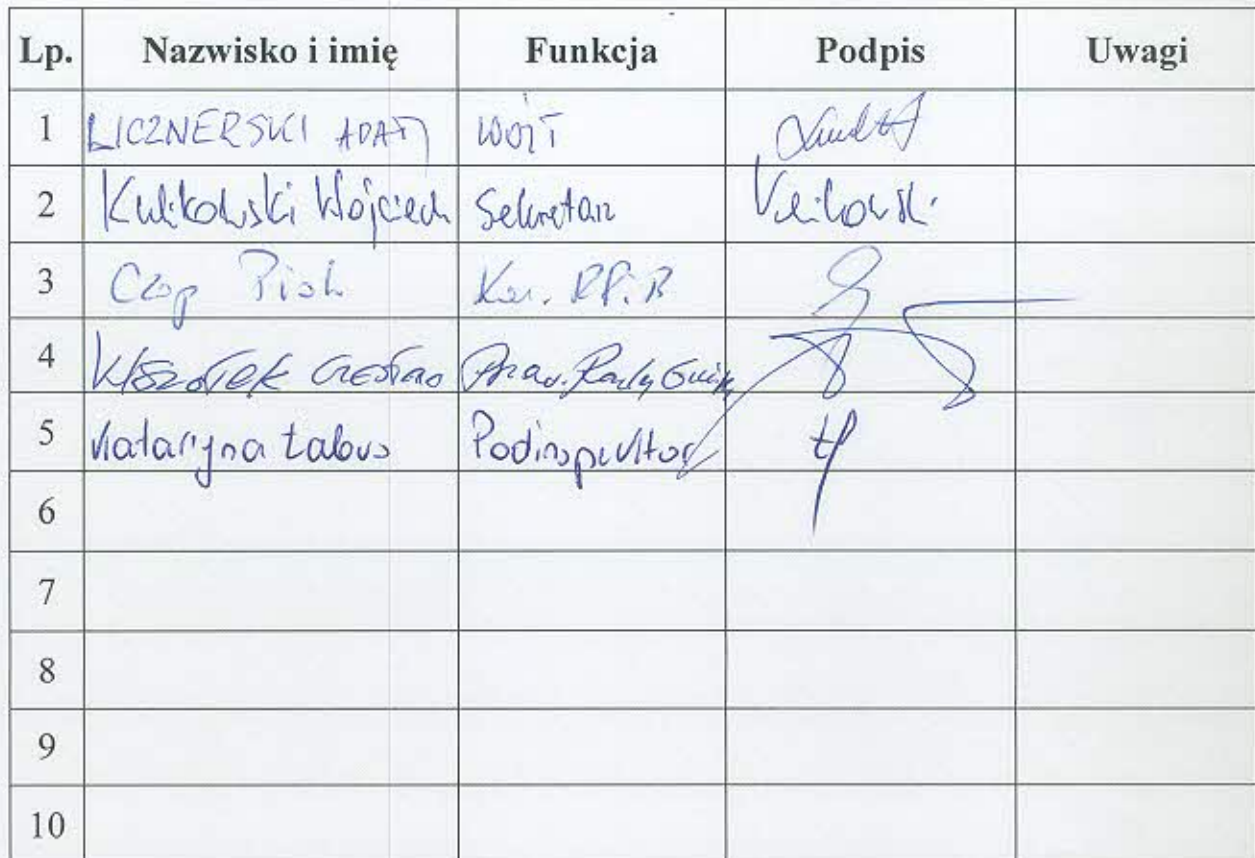 Lp. Nazwisko i imię Funkcja Podpis Uwagi
1 LICZNERSKI ADAM WÓJT
2 Kulikowski Wojciech Sekretarz Kulikowski
3 Czop Piotr Kier.
4 Czesław Przew. Rady Gminy
5 Katarzyna Łabuś Podinspektor
6
7
8
9
10